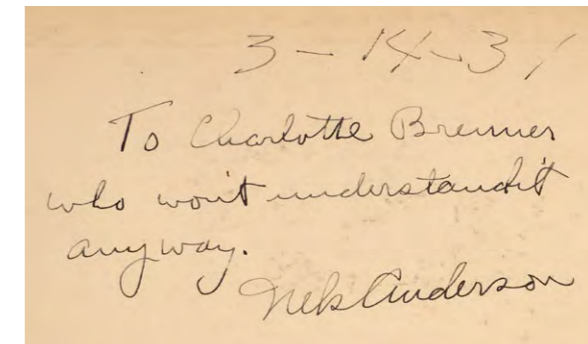 3-14-31
To Charlotte Bremer
who won't understand it
anyway.
Nels Anderson